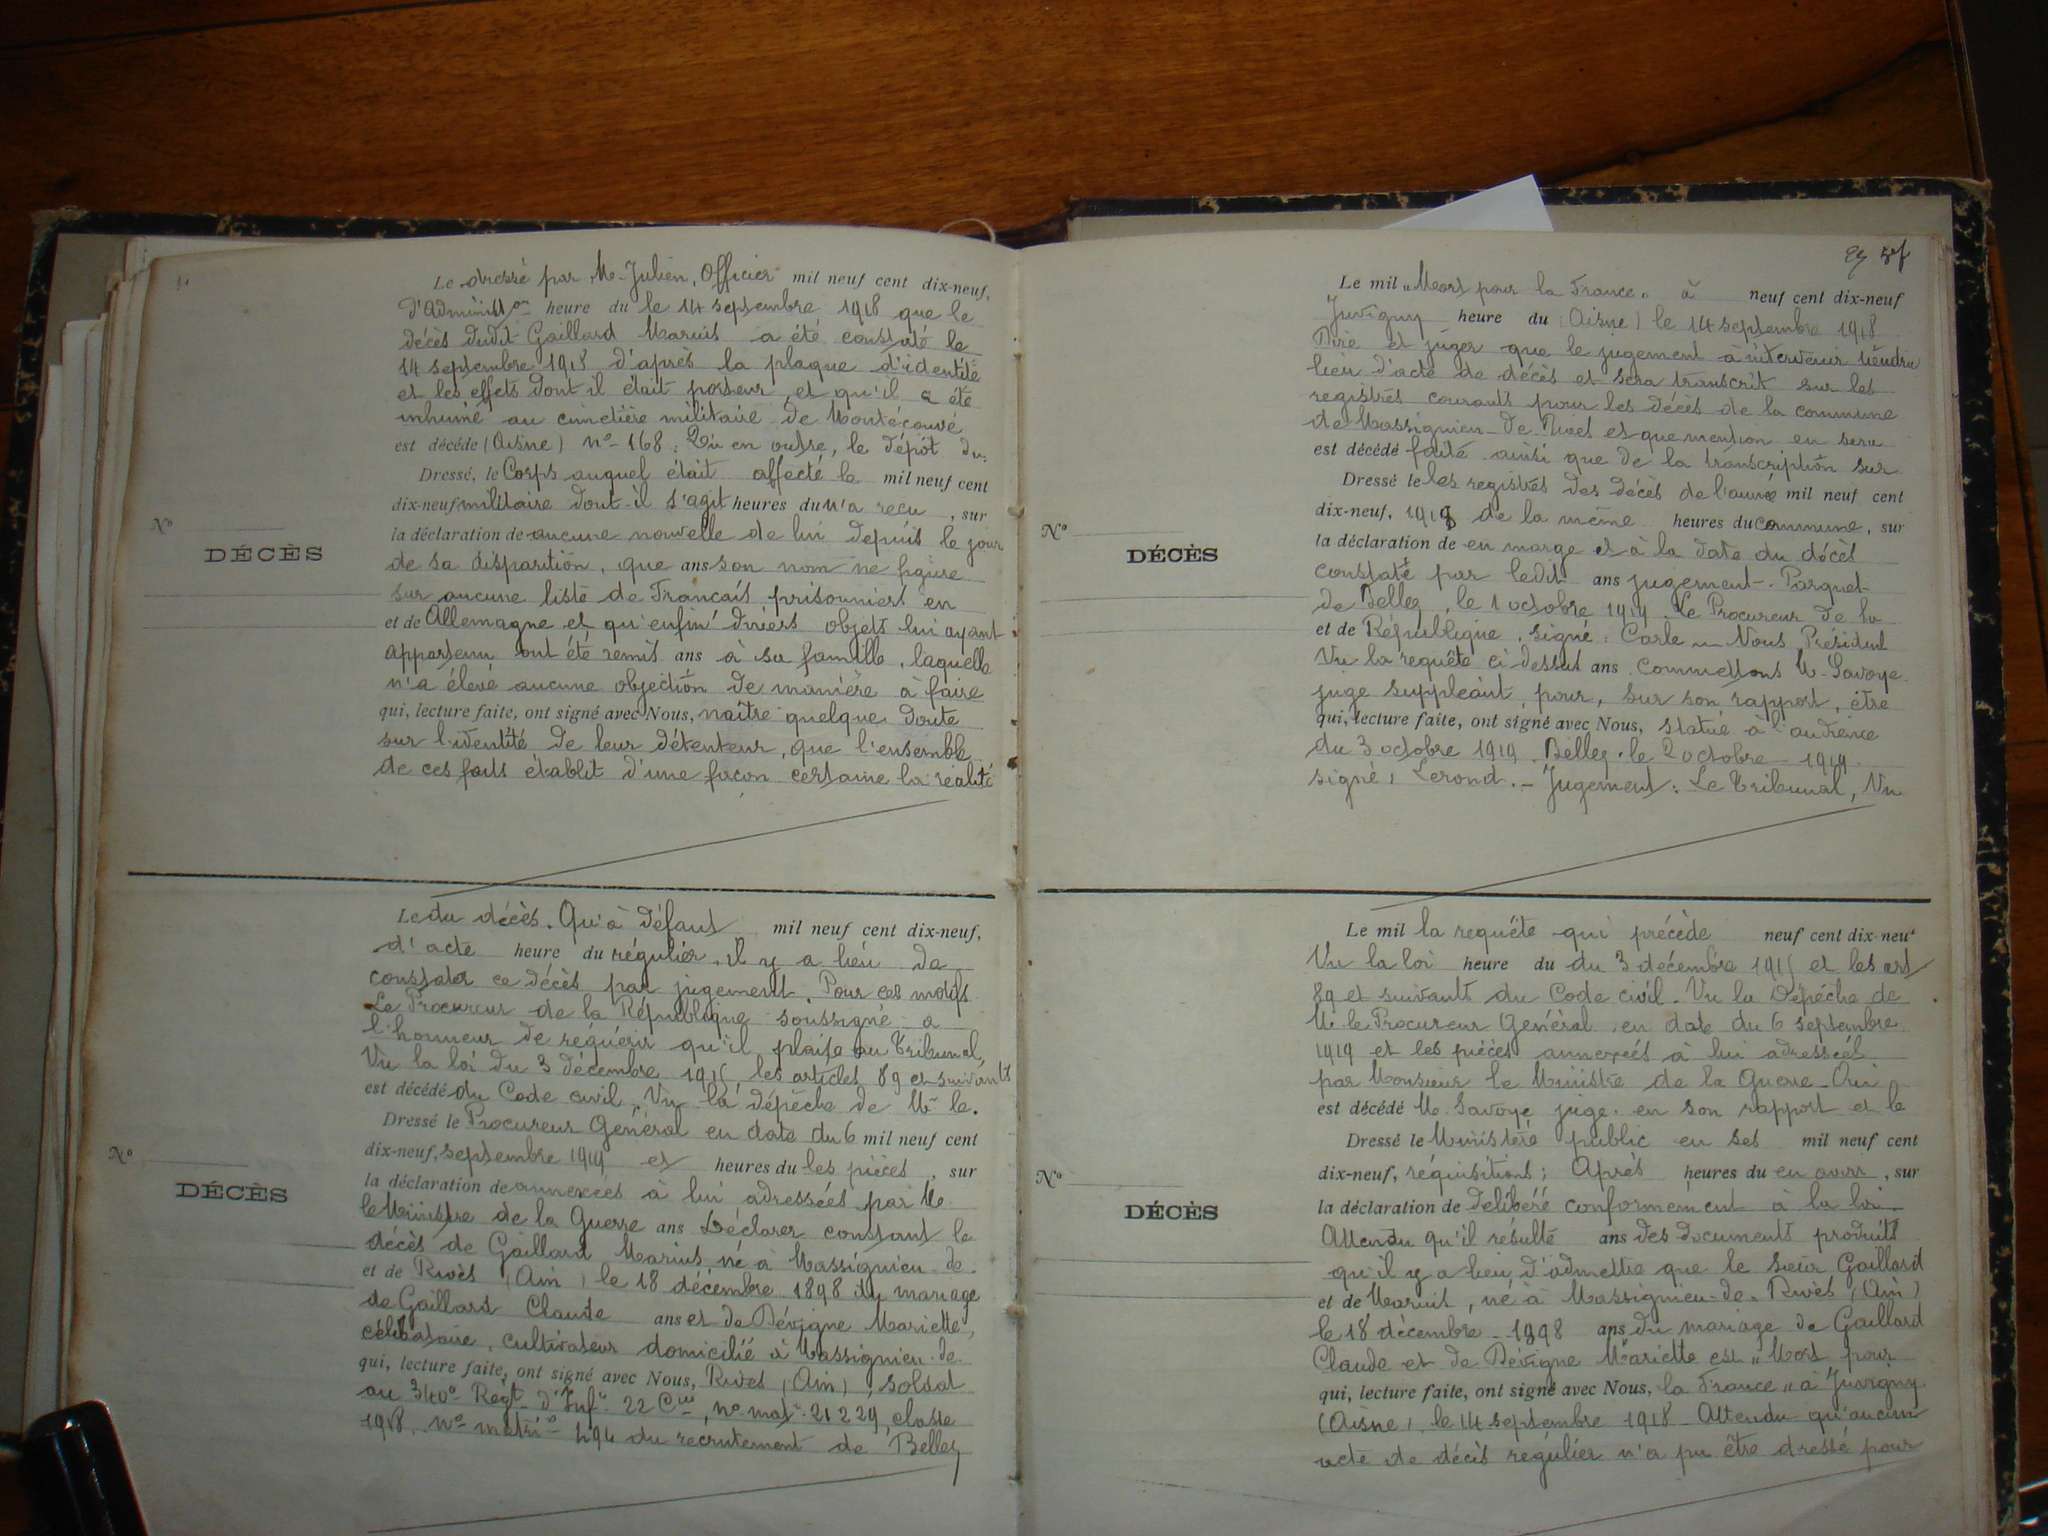 Le dressé par M. Julien, Officier mil neuf cent dix-neuf,
d'Administon heure du le 14 septembre 1918 que le
décès dudit Gaillard Marius a été constaté le
14 septembre 1918 d'après la plaque d'identité
et les effets dont il était porteur, et qu'il a été
inhumé au cimetière militaire de Montécouvé
est décédé (Aisne) no 168. Qu'en outre, le dépôt du
Dressé, le Corps auquel était affecté le mil neuf cent
dix-neuf militaire dont il s'agit heures du n'a reçu, sur
No
la déclaration de aucune nouvelle de lui depuis le jour
DÉCÈS
de sa disparition, que ans son nom ne figure
sur aucune liste de Français prisonniers en
et de Allemagne et qu'enfin divers objets lui ayant
appartenu ont été remis ans à sa famille, laquelle
n'a élevé aucune objection de manière à faire
qui, lecture faite, ont signé avec Nous, naître quelque doute
sur l'identité de leur détenteur, que l'ensemble
de ces faits établit d'une façon certaine la réalité
Le du décès. Qu'à défaut mil neuf cent dix-neuf,
d'acte heure du régulier, il y a lieu de
constater ce décès par jugement. Pour ces motifs
Le Procureur de la République soussigné a
l'honneur de requérir qu'il plaise au Tribunal,
Vu la loi du 3 décembre 1915, les articles 89 et suivants
est décédé du Code civil, Vu la dépêche de Mr le
Dressé le Procureur Général en date du 6 mil neuf cent
dix-neuf, septembre 1919 et heures du les pièces, sur
No
la déclaration de annexées à lui adressées par M.
DÉCÈS
le Ministre de la Guerre ans Déclarer constant le
décès de Gaillard Marius, né à Massignieu-de-
et de Rives (Ain) le 18 décembre 1898 du mariage
de Gaillard Claude ans et de Dévigne Mariette,
célibataire, cultivateur domicilié à Massignieu-de-
qui, lecture faite, ont signé avec Nous, Rives (Ain), soldat
au 340e Régt d'Infie 22 Cie, no mat. 21229, classe
1918, no matrie 494 du recrutement de Belley
Le mil "Mort pour la France" à neuf cent dix-neuf
Juvigny heure du (Aisne) le 14 septembre 1918
Dire et juger que le jugement à intervenir tiendra
lieu d'acte de décès et sera transcrit sur les
registres courants pour les décès de la commune
de Massignieu-de-Rives et que mention en sera
est décédé faite ainsi que de la transcription sur
Dressé le les registres des décès de l'année mil neuf cent
dix-neuf, 1918 de la même heures du commune, sur
No
la déclaration de en marge et à la date du décès
DÉCÈS
constaté par ledit ans jugement. Parquet
de Belley, le 1 octobre 1919. Le Procureur de la
et de République, signé : Carle. Nous Président
Vu la requête ci dessus ans Commettons M. Savoye
juge suppléant, pour, sur son rapport, être
qui, lecture faite, ont signé avec Nous, statué à l'audience
du 3 octobre 1919. Belley, le 2 octobre 1919
signé : Lerond. - Jugement : Le Tribunal, Vu
Le mil la requête qui précède neuf cent dix-neuf
Vu la loi heure du du 3 décembre 1915 et les art
89 et suivants du Code civil. Vu la Dépêche de
M. le Procureur Général en date du 6 septembre
1919 et les pièces annexées à lui adressées
par Monsieur le Ministre de la Guerre - Ouï
est décédé M. Savoye juge en son rapport et le
Dressé le Ministère public en ses mil neuf cent
dix-neuf, réquisitions ; Après heures du en avoir, sur
No
la déclaration de délibéré conformément à la loi
DÉCÈS
Attendu qu'il résulte ans des documents produits
qu'il y a lieu d'admettre que le sieur Gaillard
et de Marius, né à Massignieu-de-Rives (Ain)
le 18 décembre 1898 ans du mariage de Gaillard
Claude et de Dévigne Mariette est "Mort pour
qui, lecture faite, ont signé avec Nous, la France" à Juvigny
(Aisne), le 14 septembre 1918 - Attendu qu'aucun
acte de décès régulier n'a pu être dressé pour